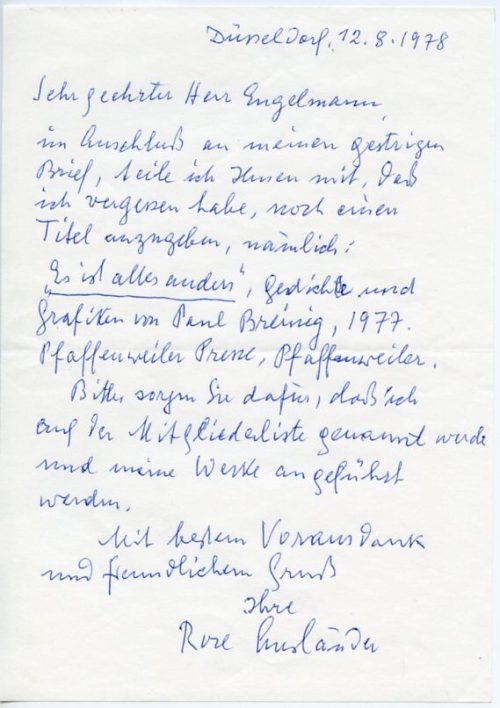 Düsseldorf, 12.8.1978
Sehr geehrter Herr Engelmann,
im Anschluß an meinen gestrigen
Brief, teile ich Ihnen mit, daß
ich vergessen habe, noch einen
Titel anzugeben, nämlich:
„Es ist alles anders", Gedichte und
Grafiken von Paul Breinig, 1977.
Pfaffenweiler Presse, Pfaffenweiler.
Bitte, sorgen Sie dafür, daß ich
auf der Mitgliederliste genannt werde
und meine Werke angeführt
werden.
Mit bestem Vorausdank
und freundlichem Gruß
Ihre
Rose Ausländer